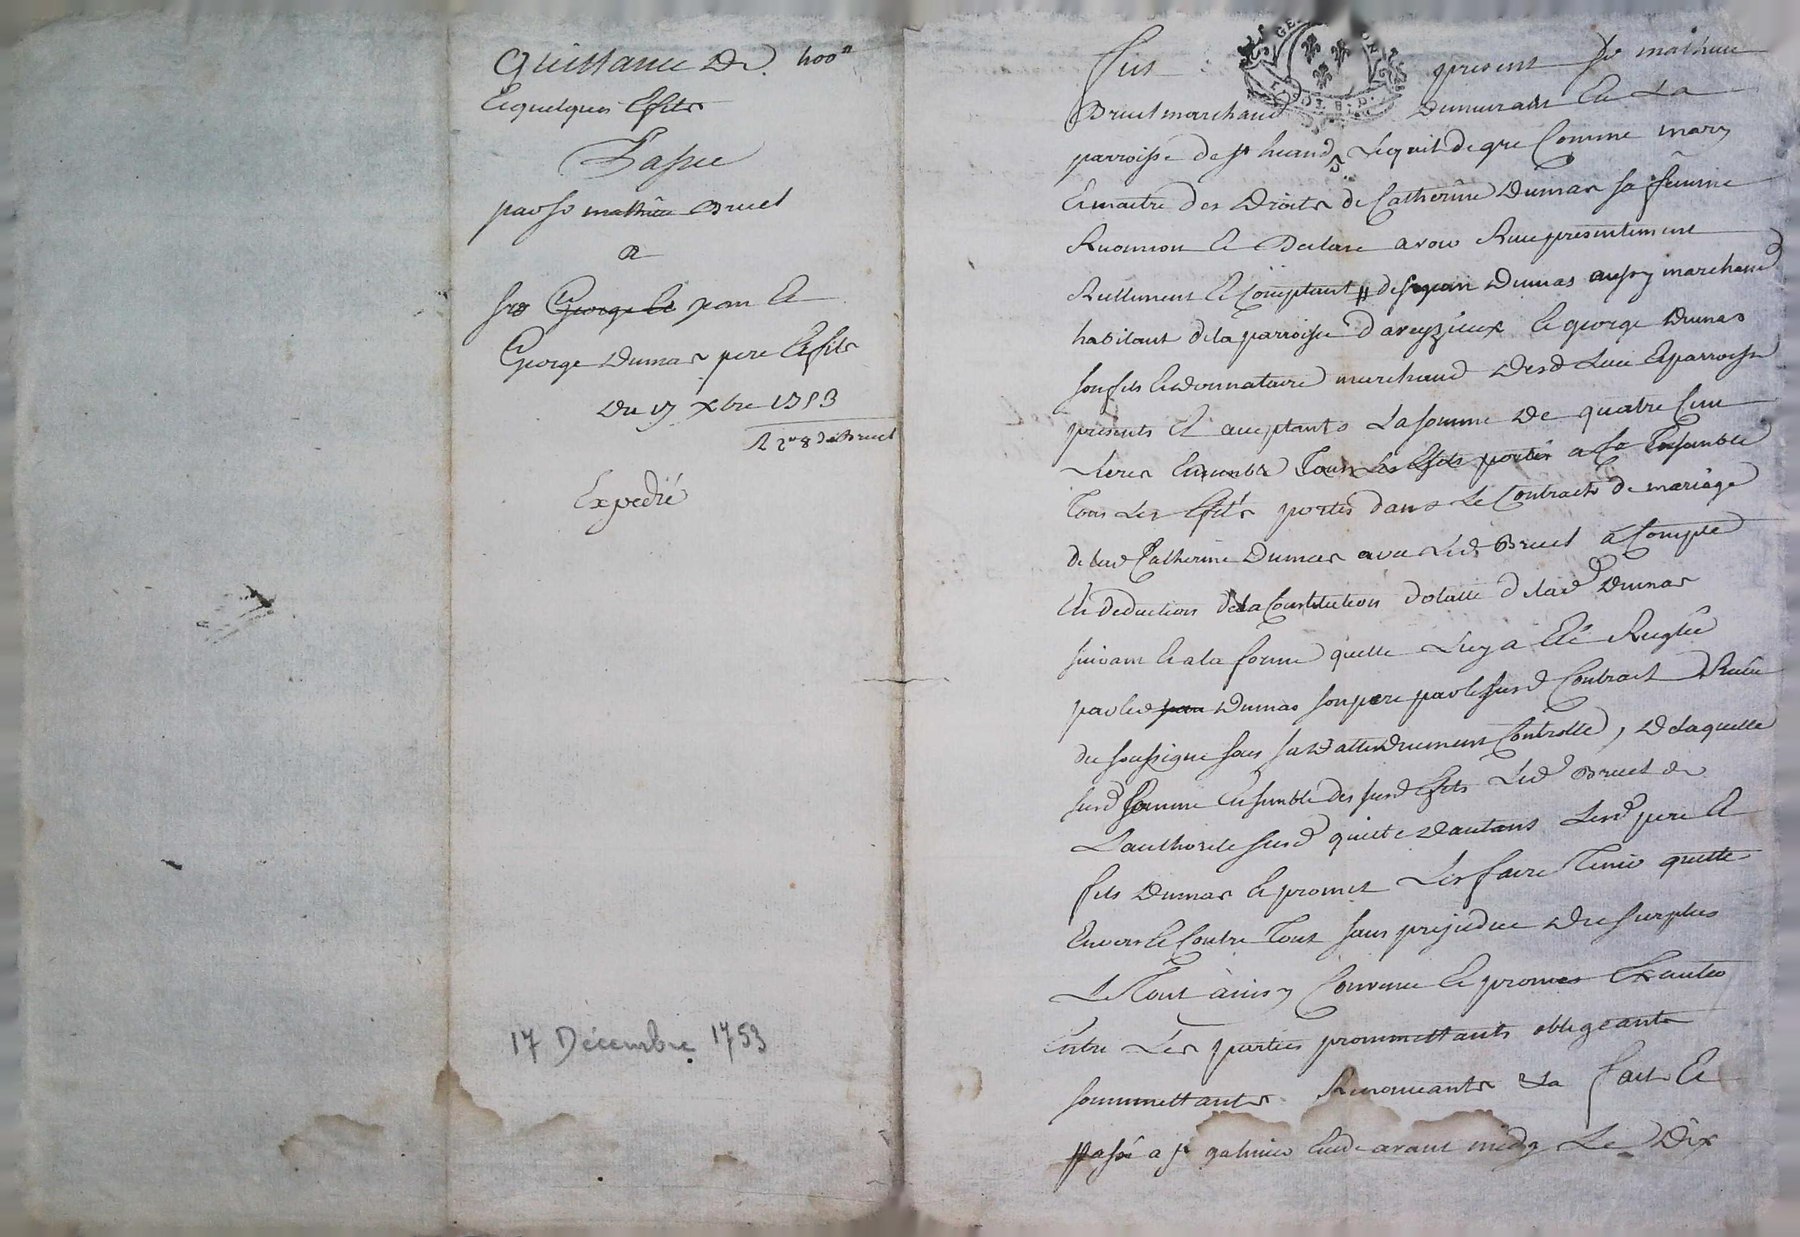 Quittance de 400ᴴ
et quelques Effets
Passee
par sr mathieu Bruel
a
srs George et jean et
George Dumas pere et fils
Du 17 Xbre 1753
Expedié
17 Décembre 1753
Fut present sr mathieu
Bruel marchand demeurant en la
parroisse de st heand, Lequel de gre Comme mary
et maitre des droits de Catherine Dumas sa femme
Reconnoit et declare avoir Receu presentement
Reellement et Comptant de sr jean Dumas aussy marchand
habitant de la parroisse d'aveyzieux et george Dumas
son fils et donnataire marchand dud Lieu et parroisse
presents et acceptants La somme de quatre Cent
Livres Ensemble Tous Les Effets portés a Ensemble
Tous Les Effets portés dans Le Contract de mariage
de lad Catherine Dumas avec Led Bruel a Compte
et deduction de la Constitution dotalle de lad Dumas
suivant et a la forme quelle Luy a Eté Reglée
par led Dumas son pere par le susd Contract Receu
du soussigne sous sa datte duement Controllé, de laquelle
susd somme Ensemble des susd Effets Led Bruel de
L'authorite susd quitte d'autant Lesd pere et
fils Dumas et promet Les faire Tenir quitte
Envers et Contre Tous sans prejudice du surplus
Le Tout ainsy Convenu et promis
Entre Les parties promettants obligeants
soummettants Renonceants &a fait et
passé a st galmier Etude avant midy Le Dix